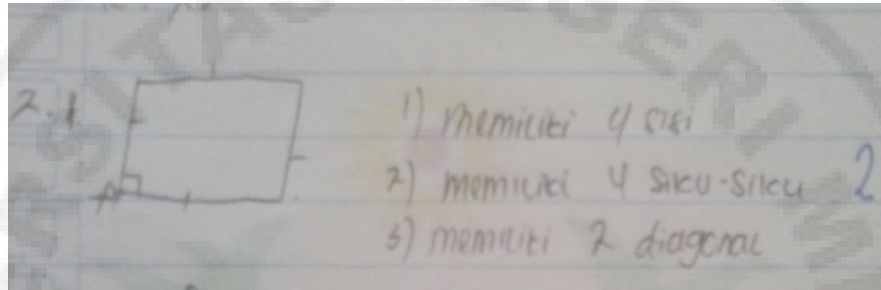 2.
1) memiliki 4 sisi
2) memiliki 4 siku-siku 2
3) memiliki 2 diagonal